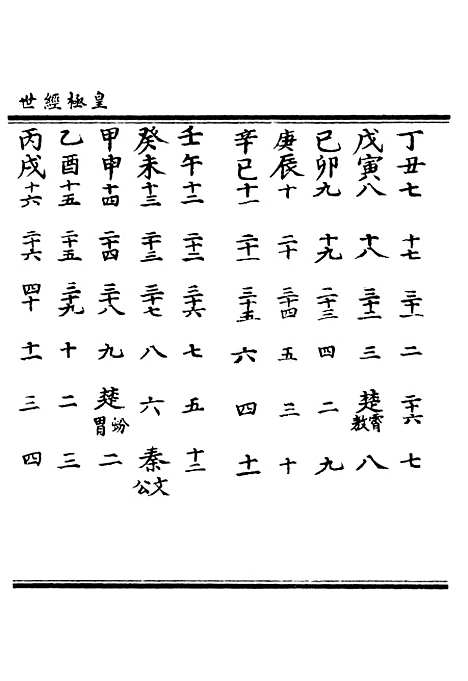 皇極經世
丁丑七 十七 三十一 二 二十六 七
戊寅八 十八 三十二 三 楚霄敖 八
己卯九 十九 三十三 四 二 九
庚辰十 二十 三十四 五 三 十
辛巳十一 二十一 三十五 六 四 十一
壬午十二 二十二 三十六 七 五 十二
癸未十三 二十三 三十七 八 六 秦文公
甲申十四 二十四 三十八 九 楚蚡冒 二
乙酉十五 二十五 三十九 十 二 三
丙戌十六 二十六 四十 十一 三 四